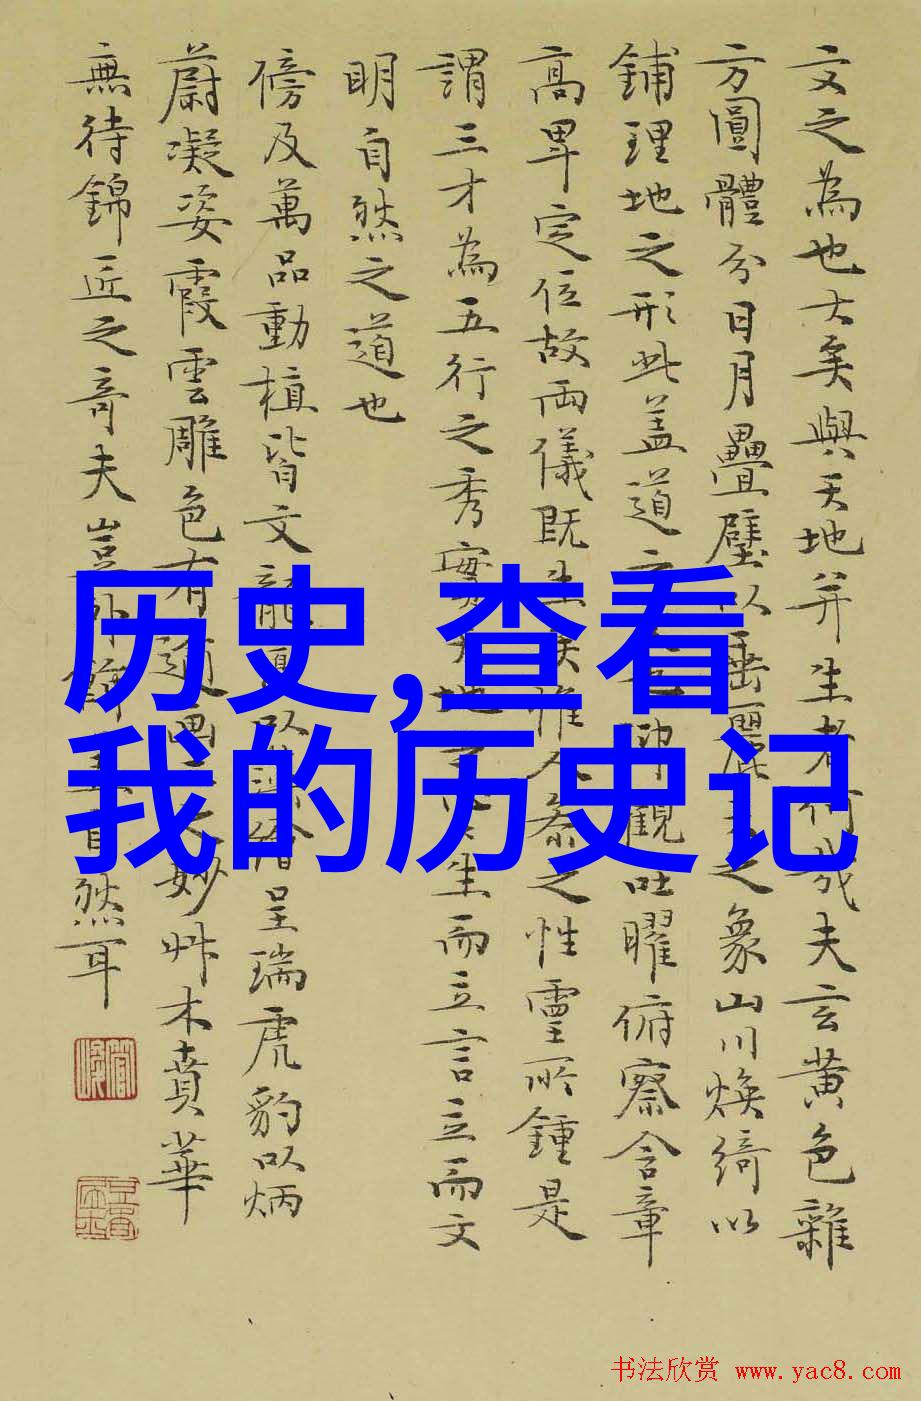 文之為也大矣與天地并生者何哉夫玄黄色雜
方圓體分日月疊璧以垂麗天之象山川焕綺以
鋪理地之形此盖道之文也仰觀吐曜俯察含章
高卑定位故兩儀既生矣惟人參之性靈所鍾是
謂三才為五行之秀實天地之心生而立言立而文
明自然之道也
傍及萬品動植皆文龍鳳以藻繪呈瑞虎豹以炳
蔚凝姿霞雲雕色有踰畫工之妙艸木賁華
無待錦匠之奇夫豈外飾盖自然耳
历史,查看
我的历史记
书法欣赏 www.yac8.com